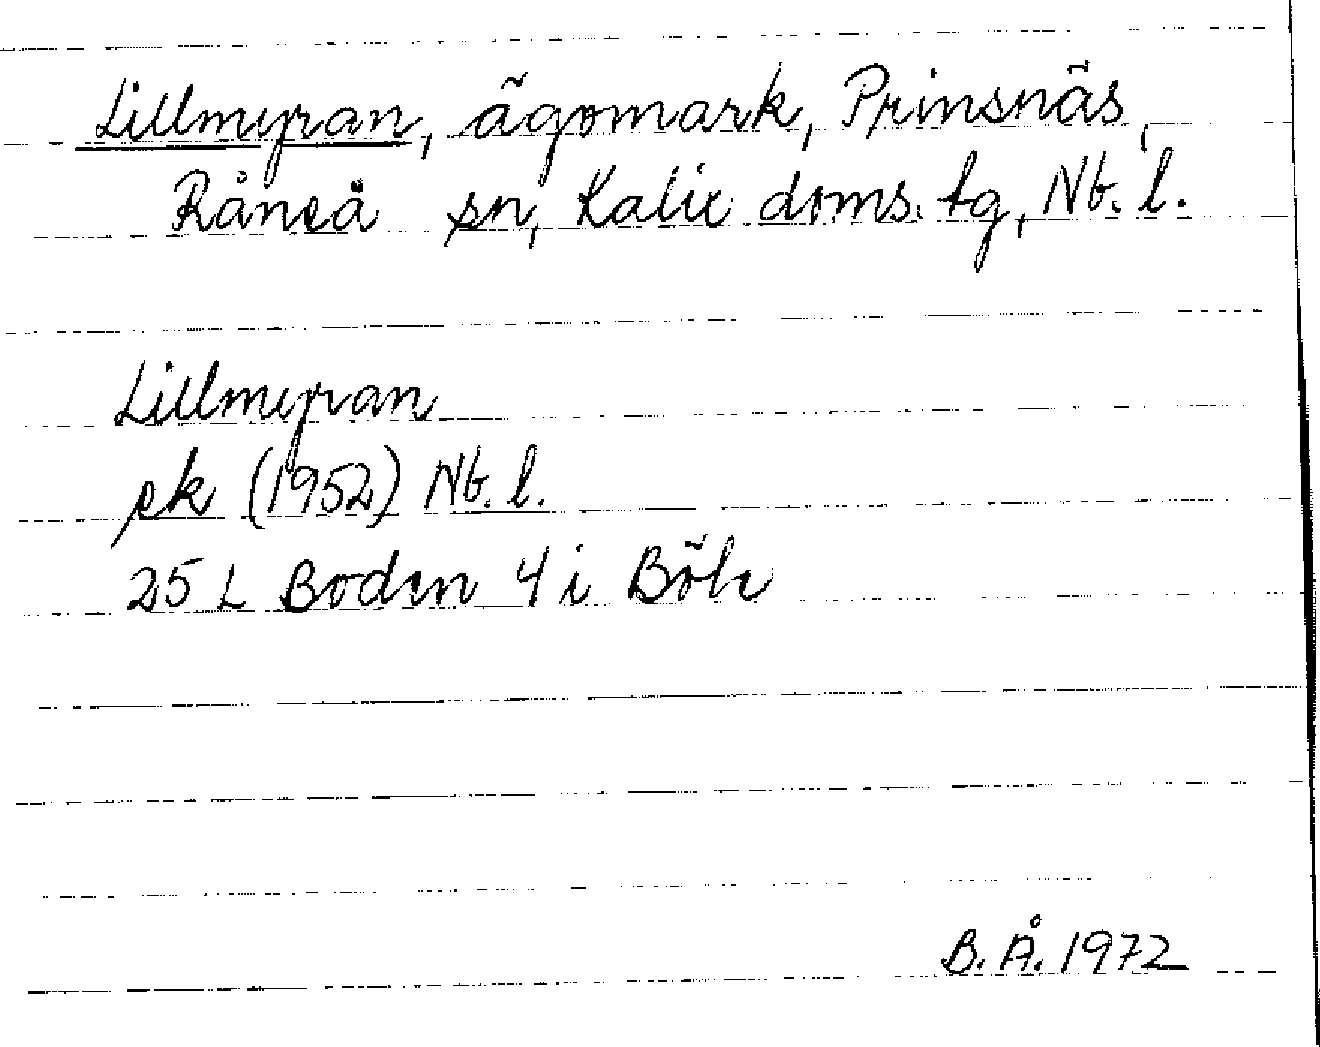 Lillmyran, ägomark, Prinsnäs,
Råneå sn, Kalix doms. tg, Nb. l.
Lillmyran
ek (1952) Nb. l.
25 L Boden 4 i Böle
B. Å. 1972